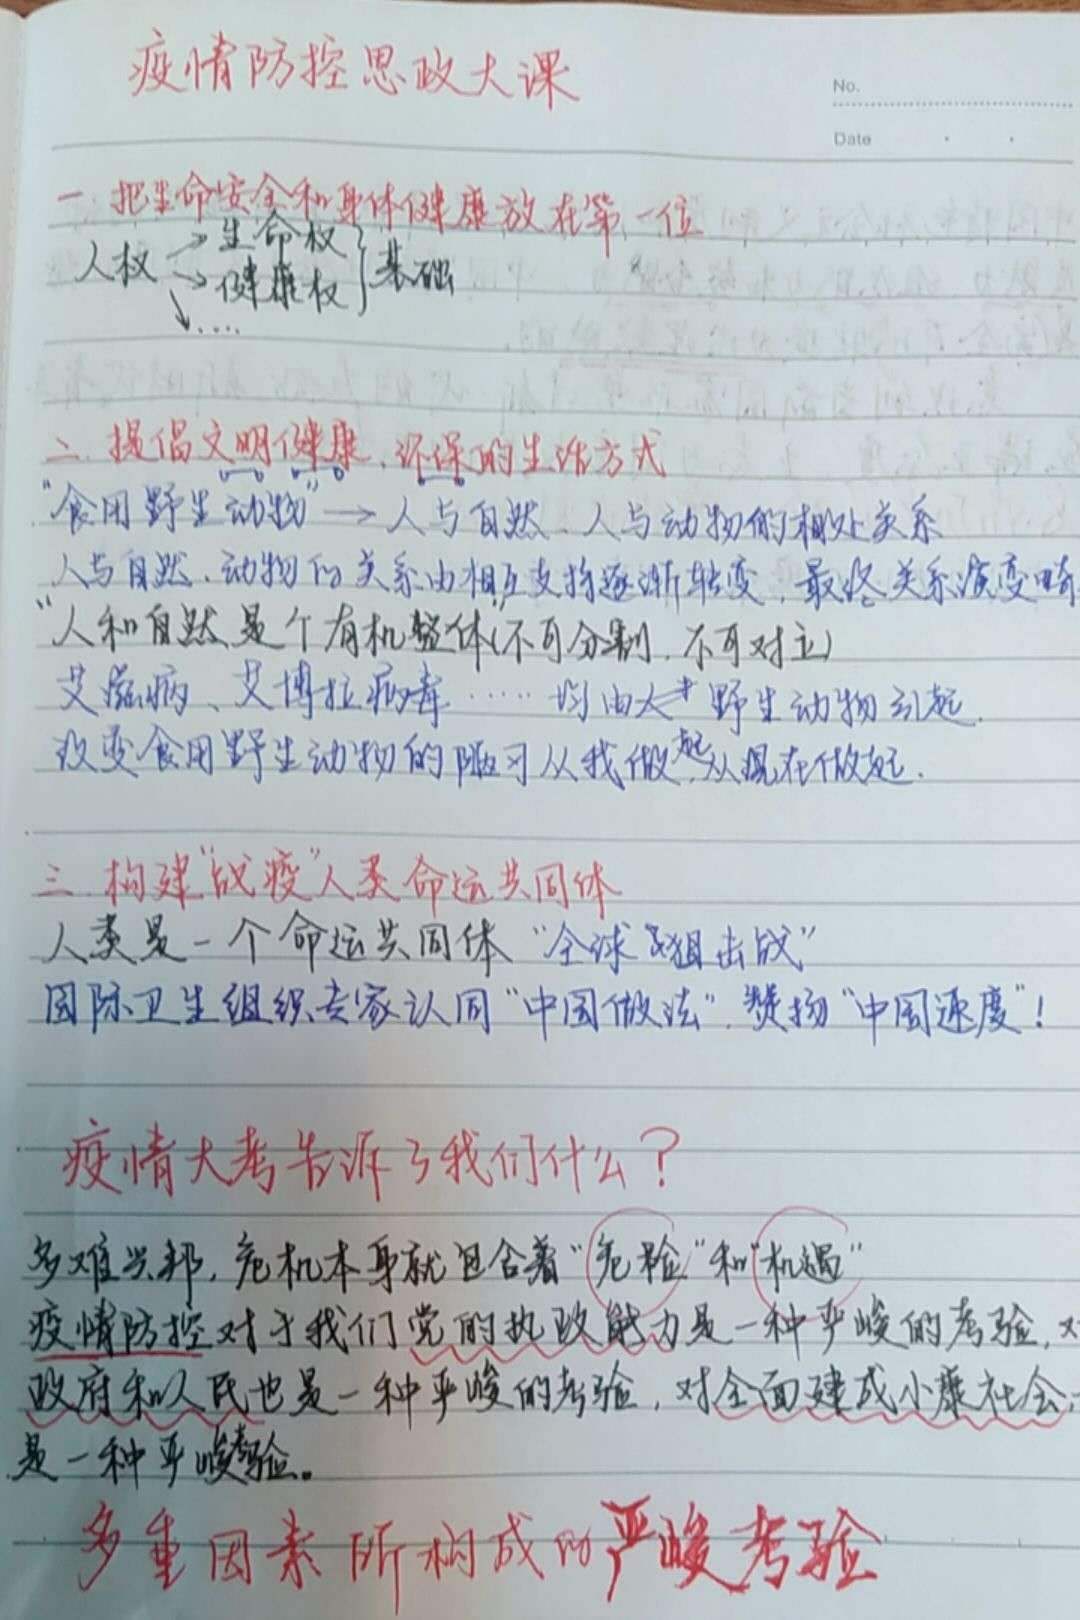 疫情防控思政大课
No.
Date
一.把生命安全和身体健康放在第一位
人权 → 生命权
→ 健康权 } 基础
↘ ....
二.提倡文明健康、环保的生活方式
“食用野生动物” → 人与自然、人与动物的相处关系
人与自然、动物的关系由相互支持逐渐转变,最终关系演变
“人和自然是个有机整体”(不可分割,不可对立)
艾滋病、艾博拉病毒……均由大* 野生动物引起.
改变食用野生动物的陋习从我做起,从现在做起.
三.构建“战疫”人类命运共同体
人类是一个命运共同体 “全球阻击战”
国际卫生组织专家认同“中国做法”,赞扬“中国速度”!
疫情大考告诉了我们什么?
多难兴邦,危机本身就包含着“危险”和“机遇”
疫情防控对于我们党的执政能力是一种严峻的考验,对
政府和人民也是一种严峻的考验,对全面建成小康社会
是一种严峻考验。
多重因素所构成的严峻考验